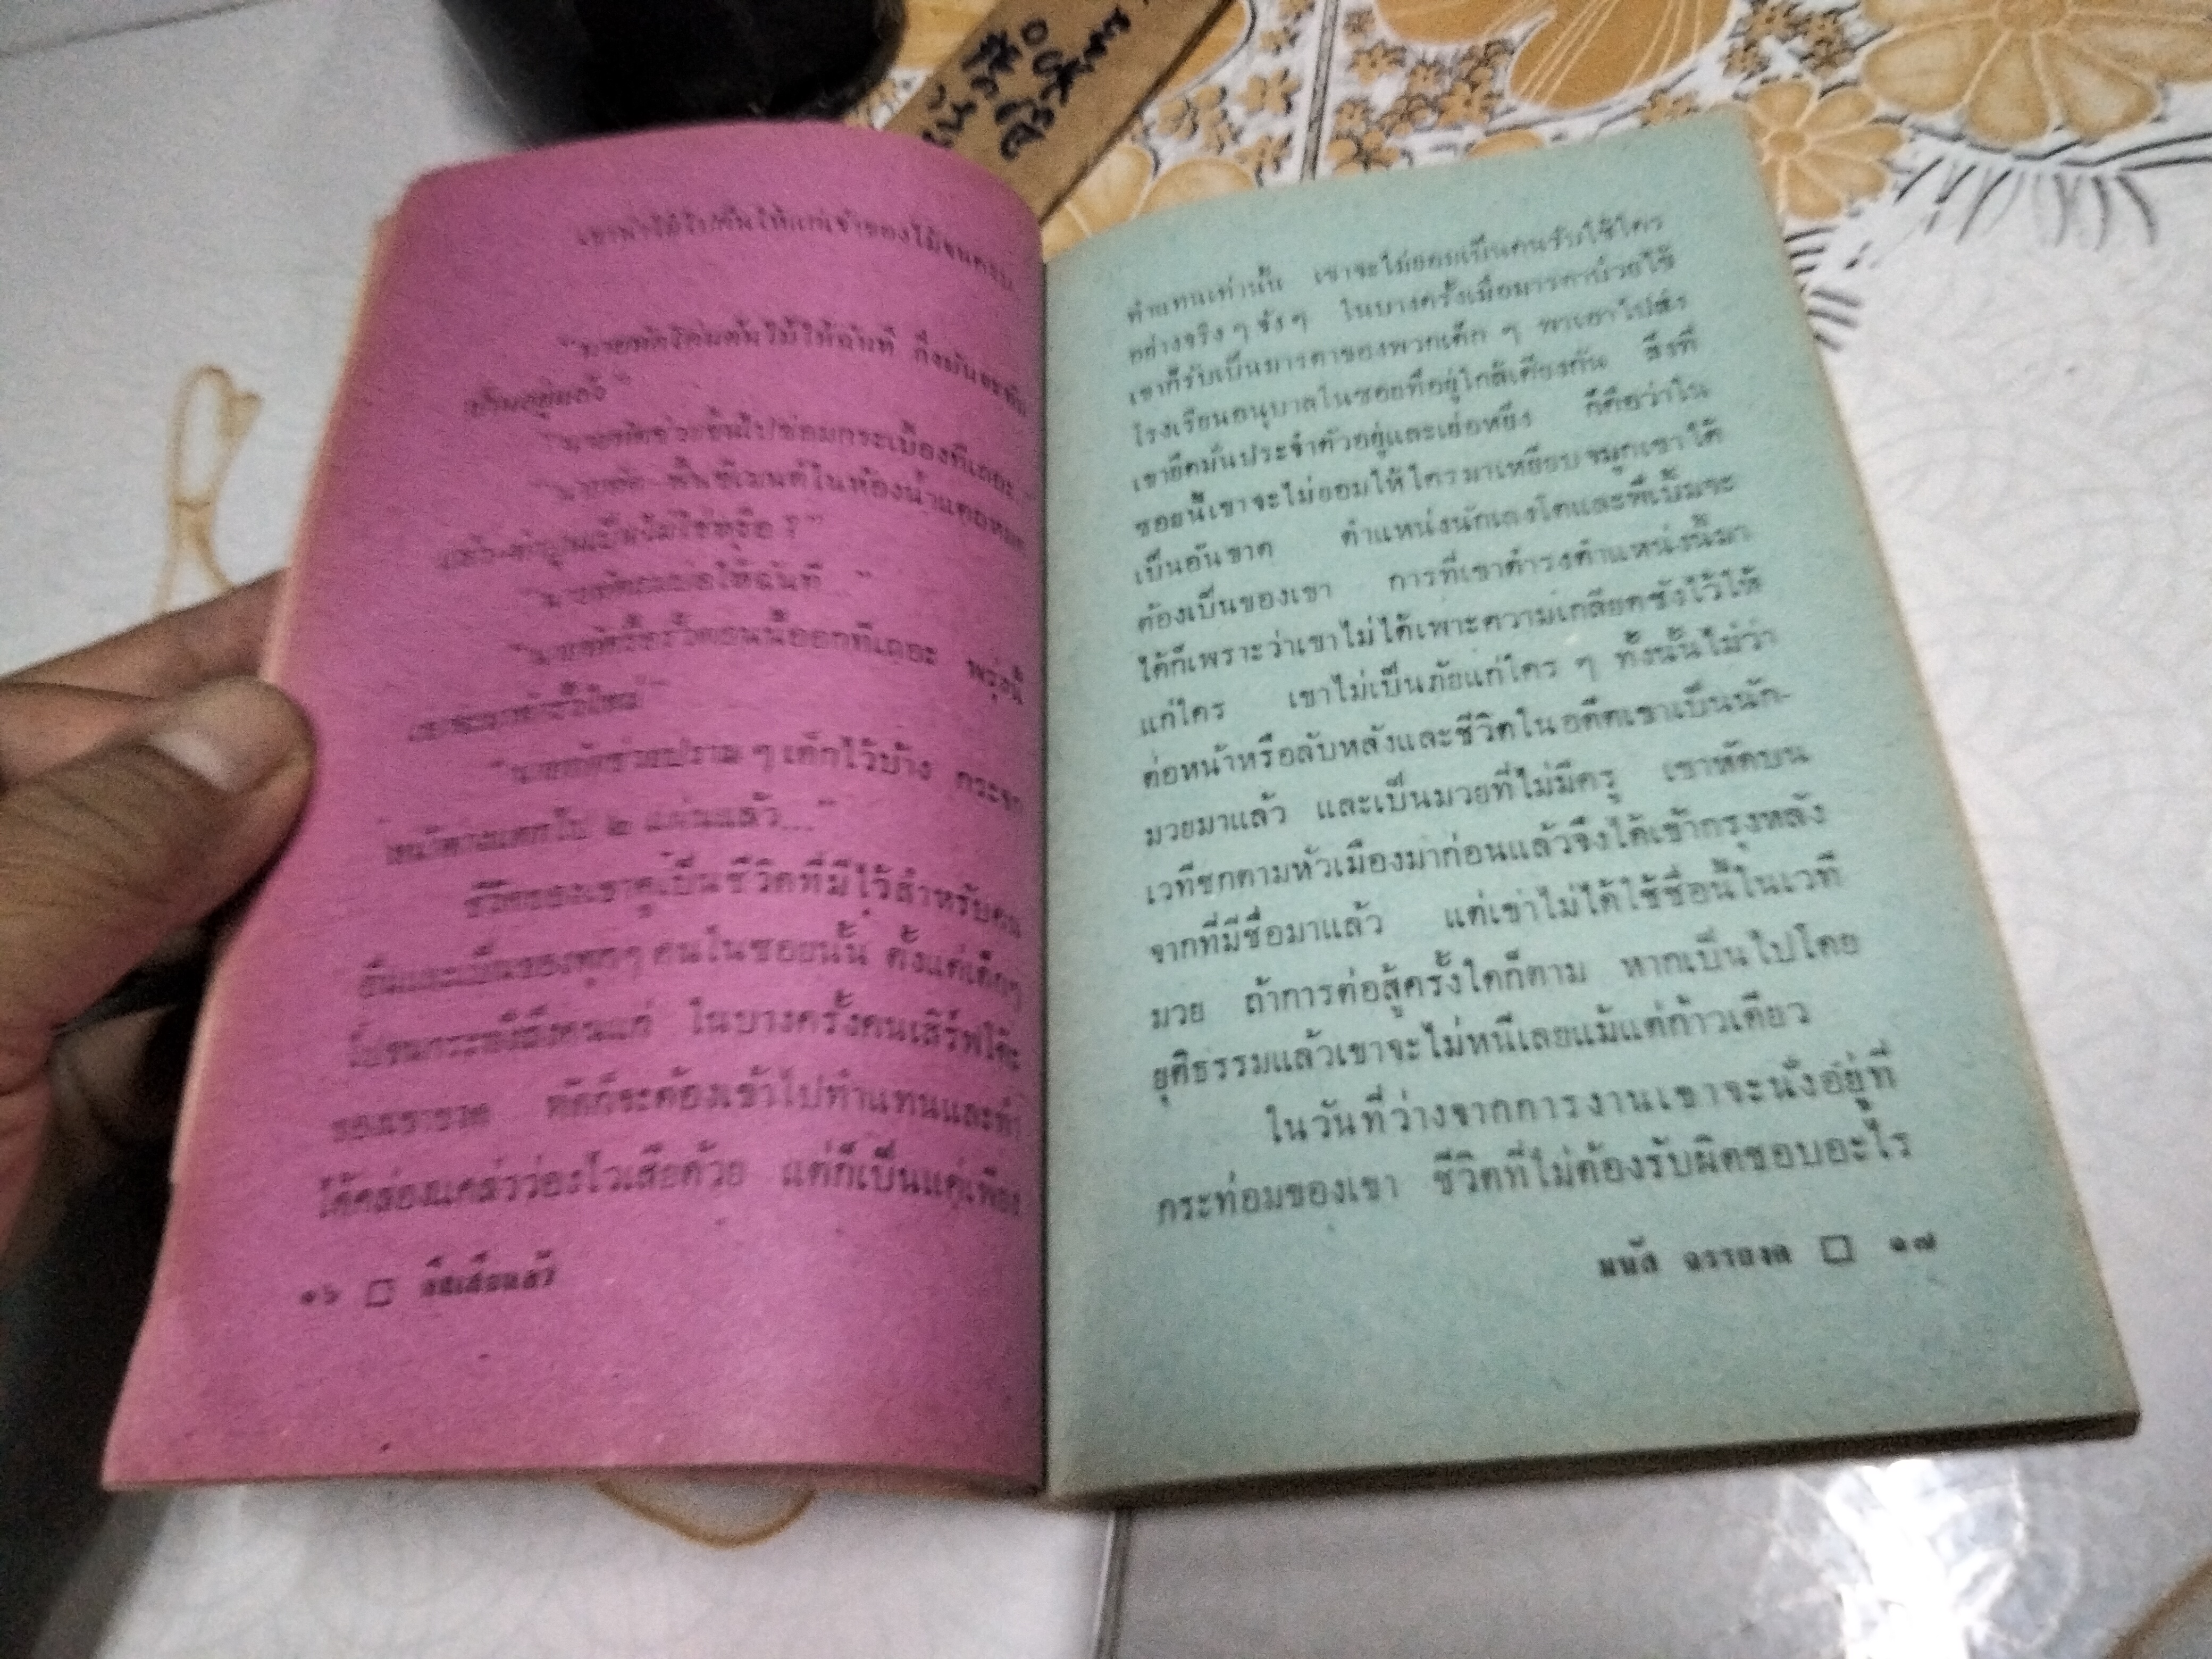 "นายทัดโค่นต้นไม้ให้ฉันที กิ่งมันจะทับ
บ้านอยู่แล้ว"
"นายทัดช่วยขึ้นไปซ่อมกระเบื้องทีเถอะ"
"นายทัด พื้นซีเมนต์ในห้องน้ำแตกหมด
แล้ว ทำปูนเป็นไม่ใช่หรือ ?"
ให้ฉันที..."
รั้วตอนนี้ออกทีเถอะ พรุ่งนี้
"นายทัดช่วยปราม ๆ เด็กไว้บ้าง กระจก
หน้าต่างแตกไป ๒ แผ่นแล้ว..."
ชีวิตของเขาดูเป็นชีวิตที่มีไว้สำหรับคน
อื่นและเป็นของทุกๆ คนในซอยนั้น ตั้งแต่เด็กๆ
ไปจนกระทั่งถึงคนแก่ ในบางครั้งคนเสิร์ฟโต๊ะ
ของเขาขาด ทัดก็จะต้องเข้าไปทำแทนและทำ
ได้คล่องแคล่วว่องไวเสียด้วย แต่ก็เป็นแต่เพียง
๑๖ □
ทำแทนเท่านั้น เขาจะไม่ยอมเป็นคนรับใช้ใคร
อย่างจริง ๆ จัง ๆ ในบางครั้งเมื่อมารดาป่วยไข้
เขาก็รับเป็นมารดาของพวกเด็ก ๆ พาเอาไปส่ง
โรงเรียนอนุบาลในซอยที่อยู่ใกล้เคียงกัน สิ่งที่
เขายึดมั่นประจำตัวอยู่และเย่อหยิ่ง ก็คือว่าใน
ซอยนี้เขาจะไม่ยอมให้ใครมาเหยียบจมูกเขาได้
เป็นอันขาด ตำแหน่งนักเลงโตและพี่เบิ้มจะ
ต้องเป็นของเขา การที่เขาดำรงตำแหน่งนี้มา
ได้ก็เพราะว่าเขาไม่ได้เพาะความเกลียดชังไว้ให้
แก่ใคร เขาไม่เป็นภัยแก่ใคร ๆ ทั้งนั้นไม่ว่า
ต่อหน้าหรือลับหลังและชีวิตในอดีตเขาเป็นนัก-
มวยมาแล้ว และเป็นมวยที่ไม่มีครู เขาหัดบน
เวทีชกตามหัวเมืองมาก่อนแล้วจึงได้เข้ากรุงหลัง
จากที่มีชื่อมาแล้ว แต่เขาไม่ได้ใช้ชื่อนี้ในเวที
มวย ถ้าการต่อสู้ครั้งใดก็ตาม หากเป็นไปโดย
ยุติธรรมแล้วเขาจะไม่หนีเลยแม้แต่ก้าวเดียว
ในวันที่ว่างจากการงานเขาจะนั่งอยู่ที่
กระท่อมของเขา ชีวิตที่ไม่ต้องรับผิดชอบอะไร
มนัส จรรยงค์ □ ๑๗